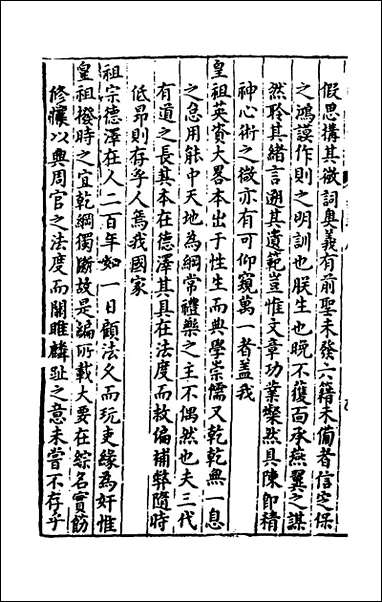 假思搆其微詞奧義有前聖未發六籍未備者信定保
之鴻謨作則之明訓也朕生也晚不獲面承燕翼之謀
然聆其緒言遡其遺範豈惟文章功業燦然具陳卽精
神心術之微亦有可仰窺萬一者蓋我
皇祖英資大畧本出于性生而典學崇儒又乾乾無一息
之怠用能中天地為綱常禮樂之主不偶然也夫三代
有道之長其本在德澤其具在法度而救偏補弊隨時
低昻則存乎人焉我國家
祖宗德澤在人二百年如一日顧法久而玩吏緣為奸惟
皇祖撥時之宜乾綱獨斷故是編所載大要在綜名實飭
修𢣷以興周官之法度而關雎麟趾之意未嘗不存乎